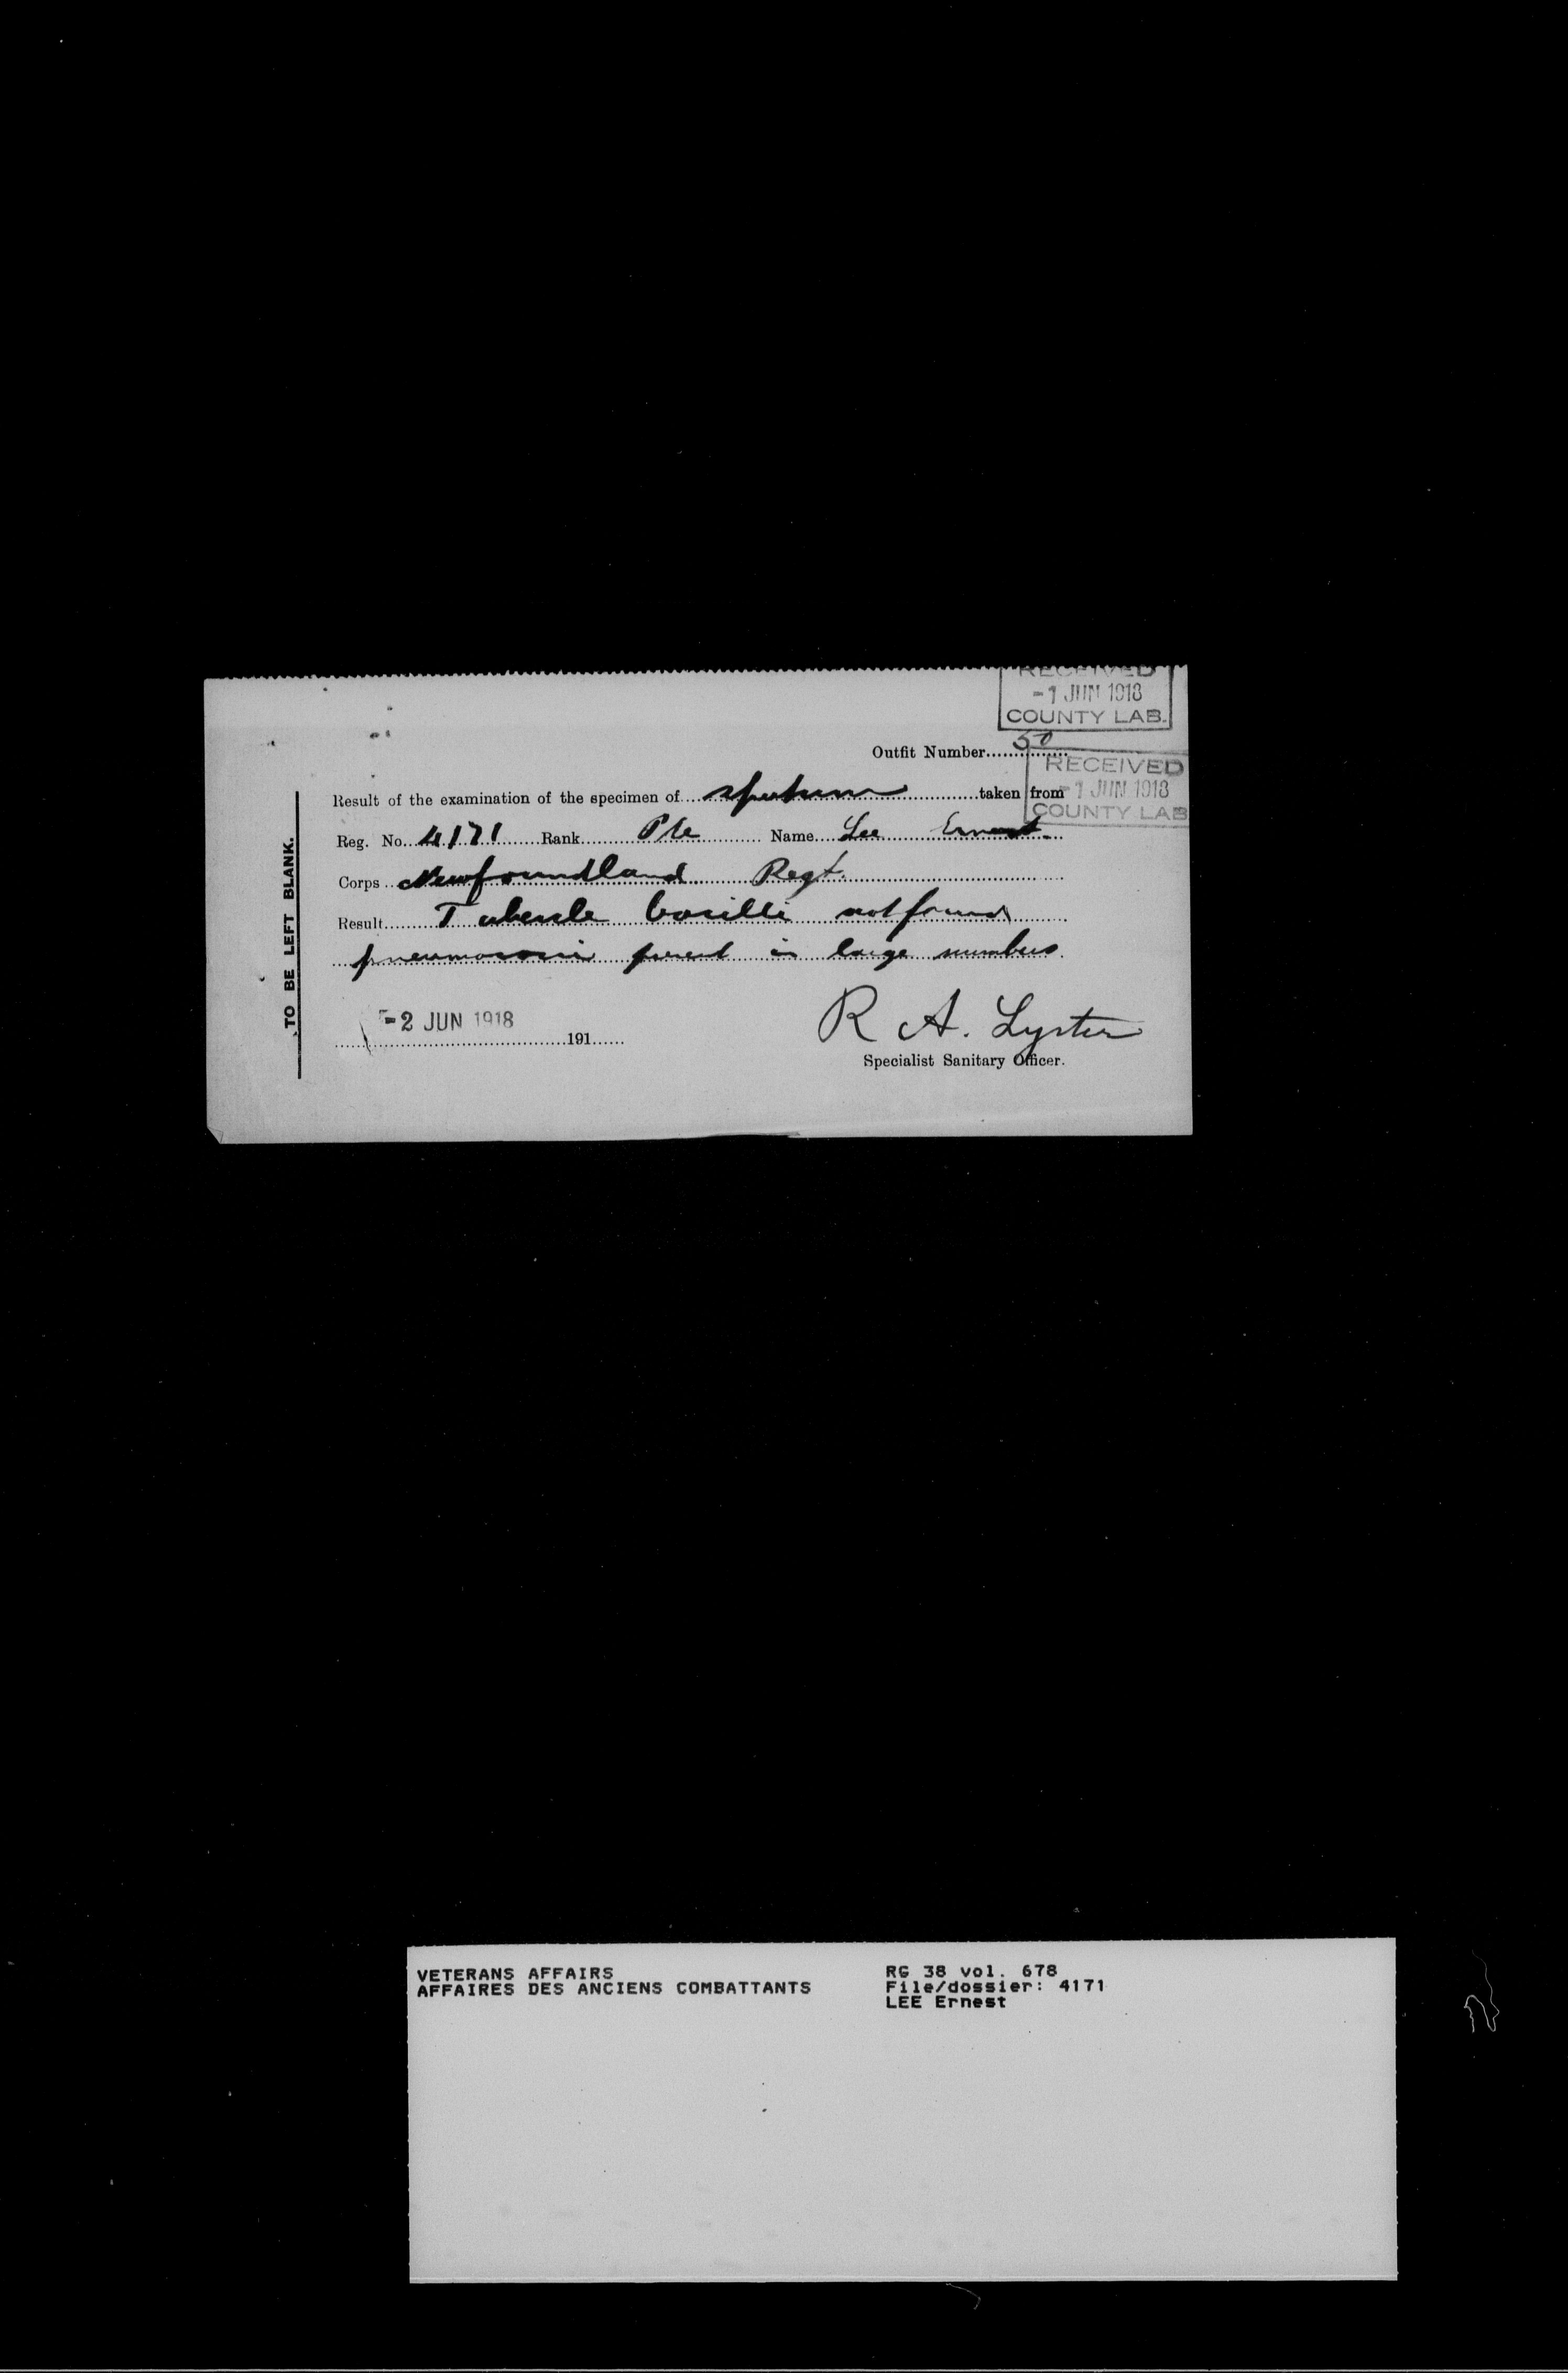 RECEIVED
-1 JUN 1918
COUNTY LAB.
Outfit Number 50
RECEIVED
-1 JUN 1918
COUNTY LAB
Result of the examination of the specimen of sputum taken from
Reg. No. 4171 Rank Pte Name Lee Ernest
Corps Newfoundland Regt.
Result Tubercle bacilli not found
pneumococci present in large numbers
-2 JUN 1918
191
R A. Lyster
Specialist Sanitary Officer.
TO BE LEFT BLANK.
VETERANS AFFAIRS
AFFAIRES DES ANCIENS COMBATTANTS
RG 38 vol. 678
File/dossier: 4171
LEE Ernest